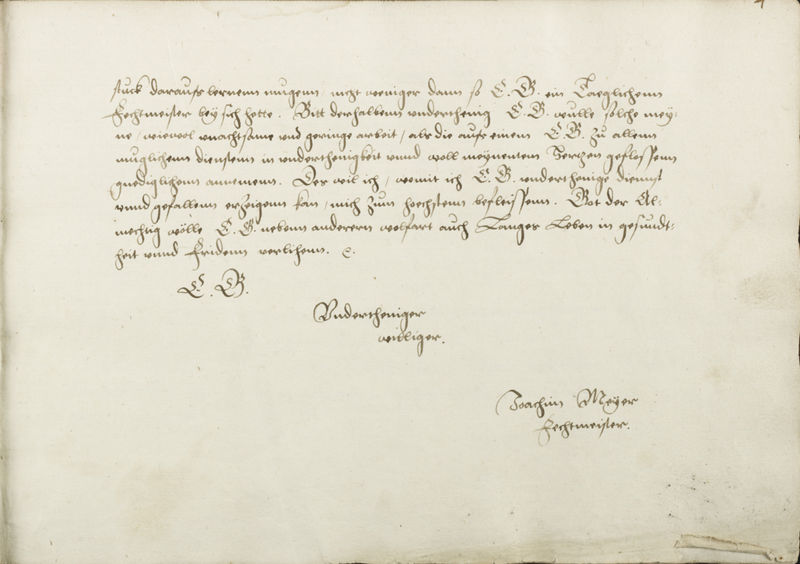 stuck daraufs lernenn mugenn, nicht weniger dann so E. G. ein Taeglichenn
Fechtmeister bey sich hette. Bitt derhalbenn underthenig E. G. wulle solche mey=
ne, wiewol unachtsame und geringe arbeit, als die aufs einem E. G. zu allenn
muglichenn dienstenn in underthenigkeit unnd woll meynentem Hertzen geflossenn
gnediglichenn annemenn. Des wil ich, womit ich E. G. underthenige dienst
unnd gefallenn erzeigenn kan, mich zum hoechstenn befleissenn. Got der Al=
mechtig wölle E. G. nebenn anderern wolfart auch Langes Leben in gesundt=
heit unnd Fridenn verlihenn. &.
E. G.
Undertheniger
williger.
Joachim Meyer
Fechtmeister.